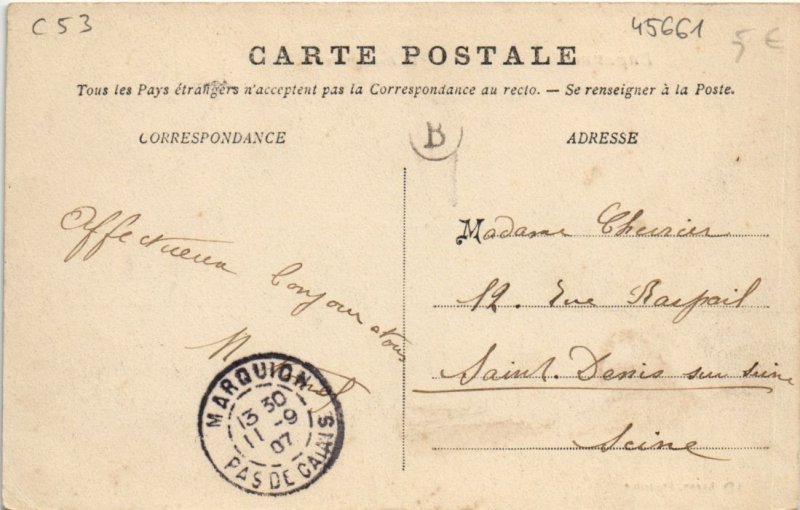 C 53
45661
5 €
CARTE POSTALE
Tous les Pays étrangers n'acceptent pas la Correspondance au recto. — Se renseigner à la Poste.
CORRESPONDANCE
B
ADRESSE
Affectueux
bonjour a tous
M
Madame
12. Rue Raspail
Saint. Denis sur Seine
Seine
MARQUION
13 30
11 -9
07
PAS DE CALAIS